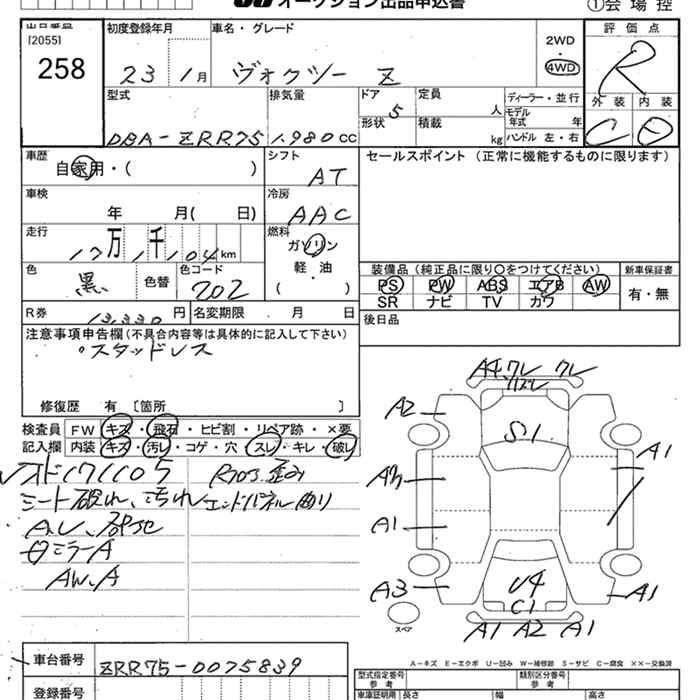 オークション出品申込書
①会場控
[2055]
258
初度登録年月
23 1月
車名・グレード
ヴォクシー Z
2WD
・
4WD
評価点
R
外装 内装
C D
型式
DBA-ZRR75
排気量
1,980 CC
ドア
5
形状
定員
人
積載
kg
ディーラー・並行
モデル年式 年
ハンドル 左・右
車歴
自家用・( )
シフト
AT
セールスポイント (正常に機能するものに限ります)
車検
年 月( 日)
冷房
AAC
走行
万 千 km
燃料
ガソリン
・
軽・油
( )
色
黒
色替
色コード
202
装備品(純正品に限り○をつけてください)
PS PW ABS エアB AW
SR ナビ TV カワ
新車保証書
有・無
R券
13,330 円
名変期限 月 日
後日品
注意事項申告欄(不具合内容等は具体的に記入して下さい)
スタッドレス
修復歴 有 〔箇所 〕
検査員
記入欄
FW キズ・飛石・ヒビ割・リペア跡・×要
内装 キズ・汚レ・コゲ・穴・スレ・キレ・破レ
シート破れ、汚れ
エンドパネル曲り
ミラーA
AW.A
A4
A2
S1
A1
A3
A1
A3
U4
C1
A1
A1 A2 A1
スペア
A-キズ E-エクボ U-凹み W-補修跡 S-サビ C-腐食 ××-交換済
車台番号
ZRR75-0075839
登録番号
型式指定番号
参考
類別区分番号
参考
車庫証明用 長さ 幅 高さ